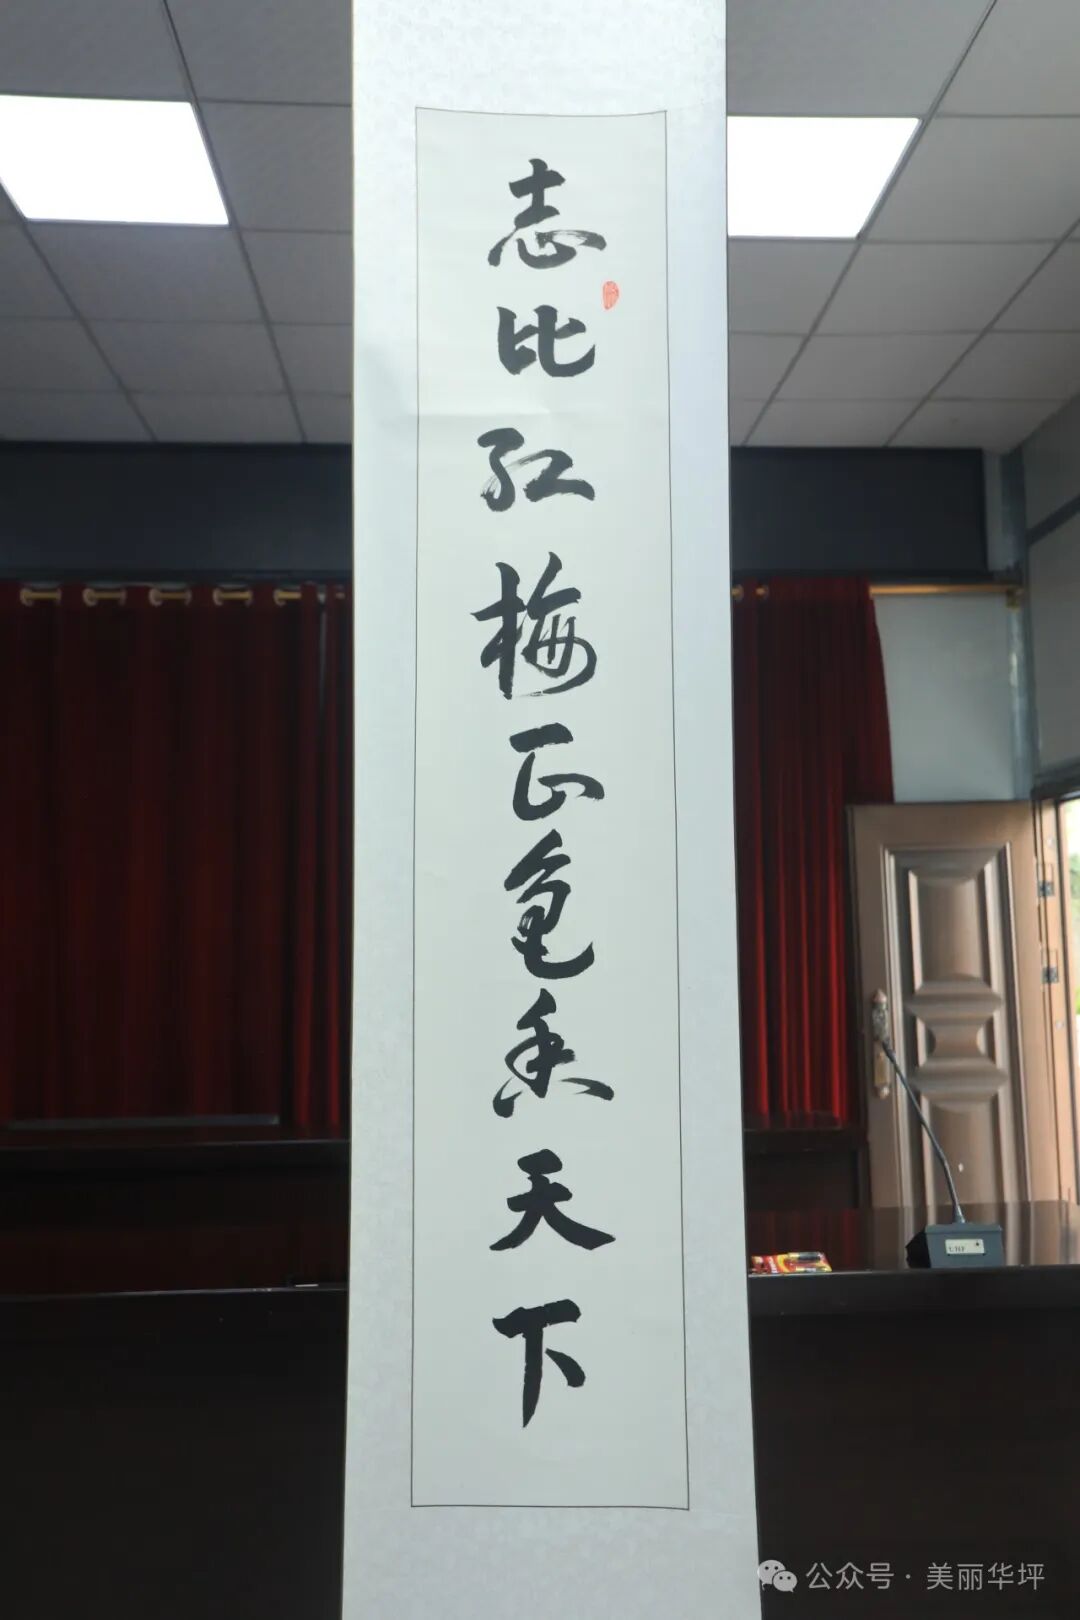 志比红梅正色秀天下
UHF
公众号·美丽华坪